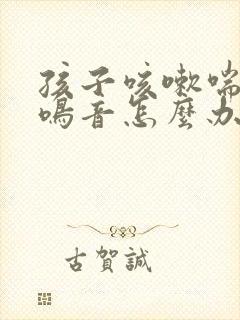 孩子咳嗽喘
鳴音怎麼办
古賀誠